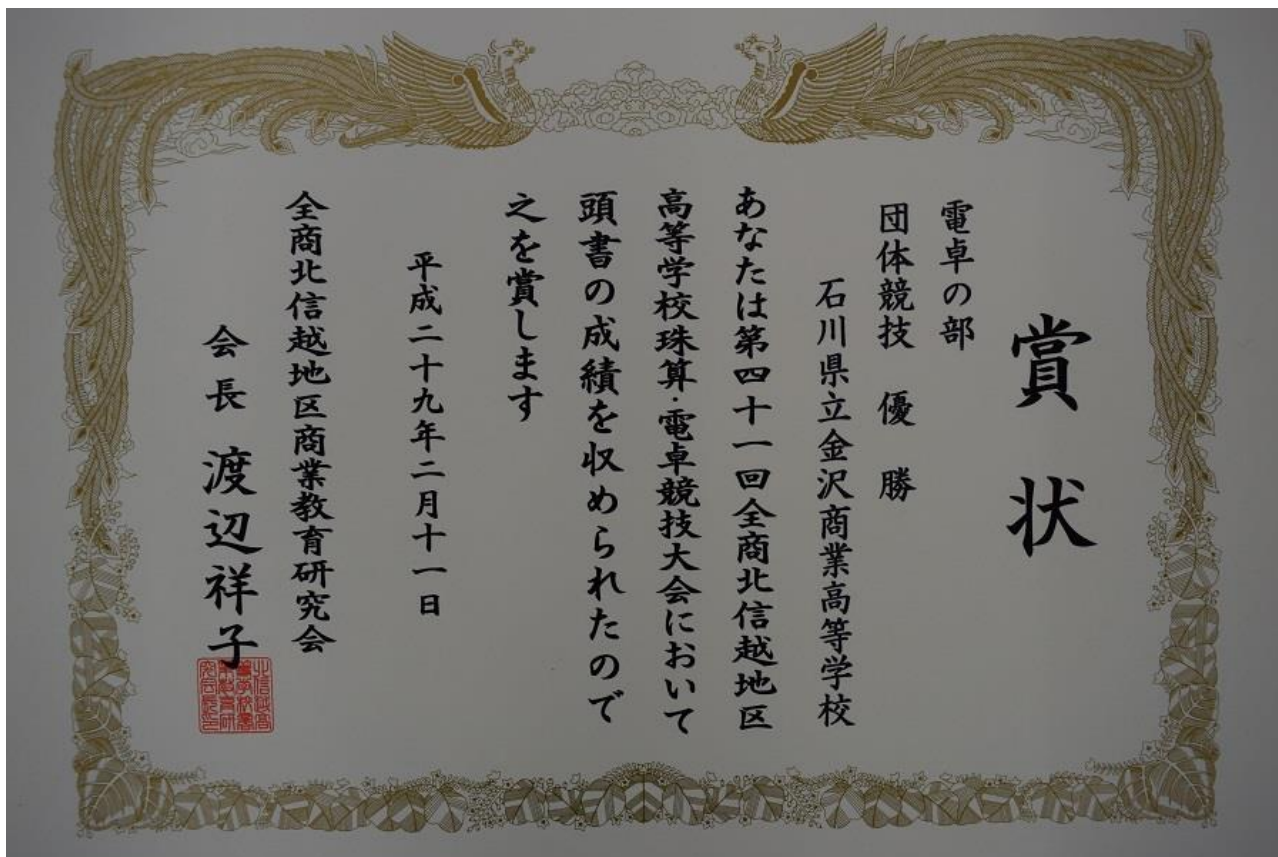 賞状
電卓の部
団体競技 優勝
石川県立金沢商業高等学校
あなたは第四十一回全商北信越地区
高等学校珠算・電卓競技大会において
頭書の成績を収められたので
之を賞します
平成二十九年二月十一日
全商北信越地区商業教育研究会
会長 渡辺祥子